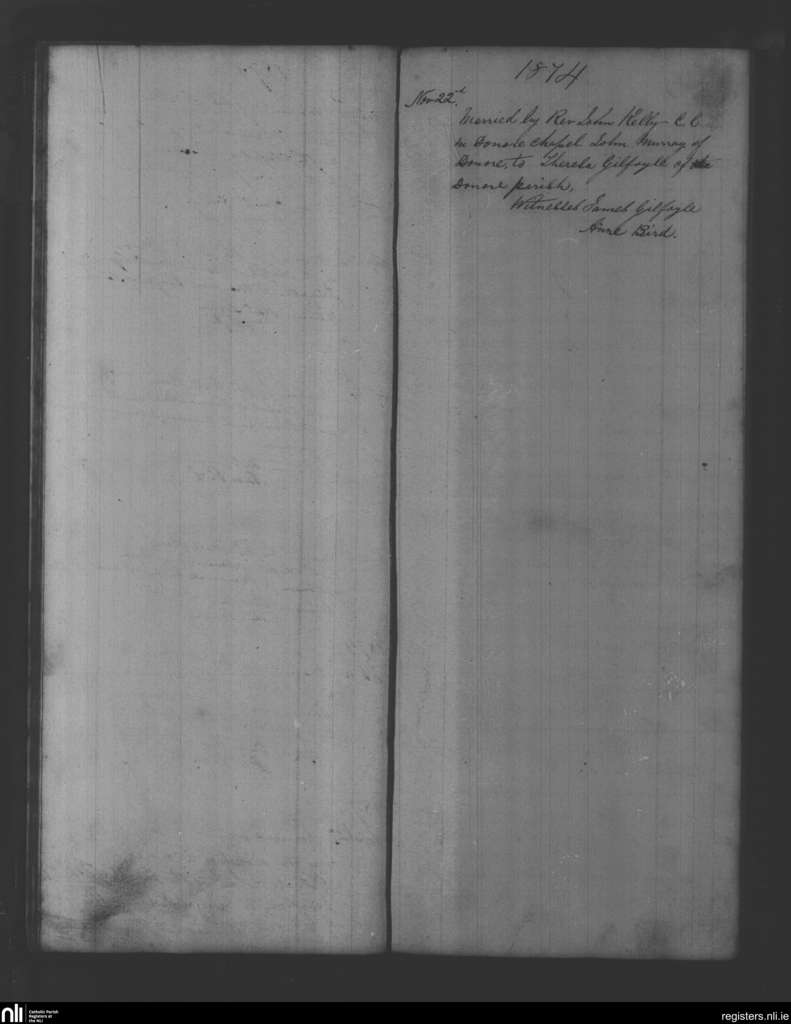 1874
Nov 22d.
Married by Rev John Kelly C C
in Donore chapel John Murray of
Donore, to Theresa Gilfoyle of
Donore parish,
Witnesses James Gilfoyle
Anne Bird.
nli
Catholic Parish
Registers at
the NLI
registers.nli.ie